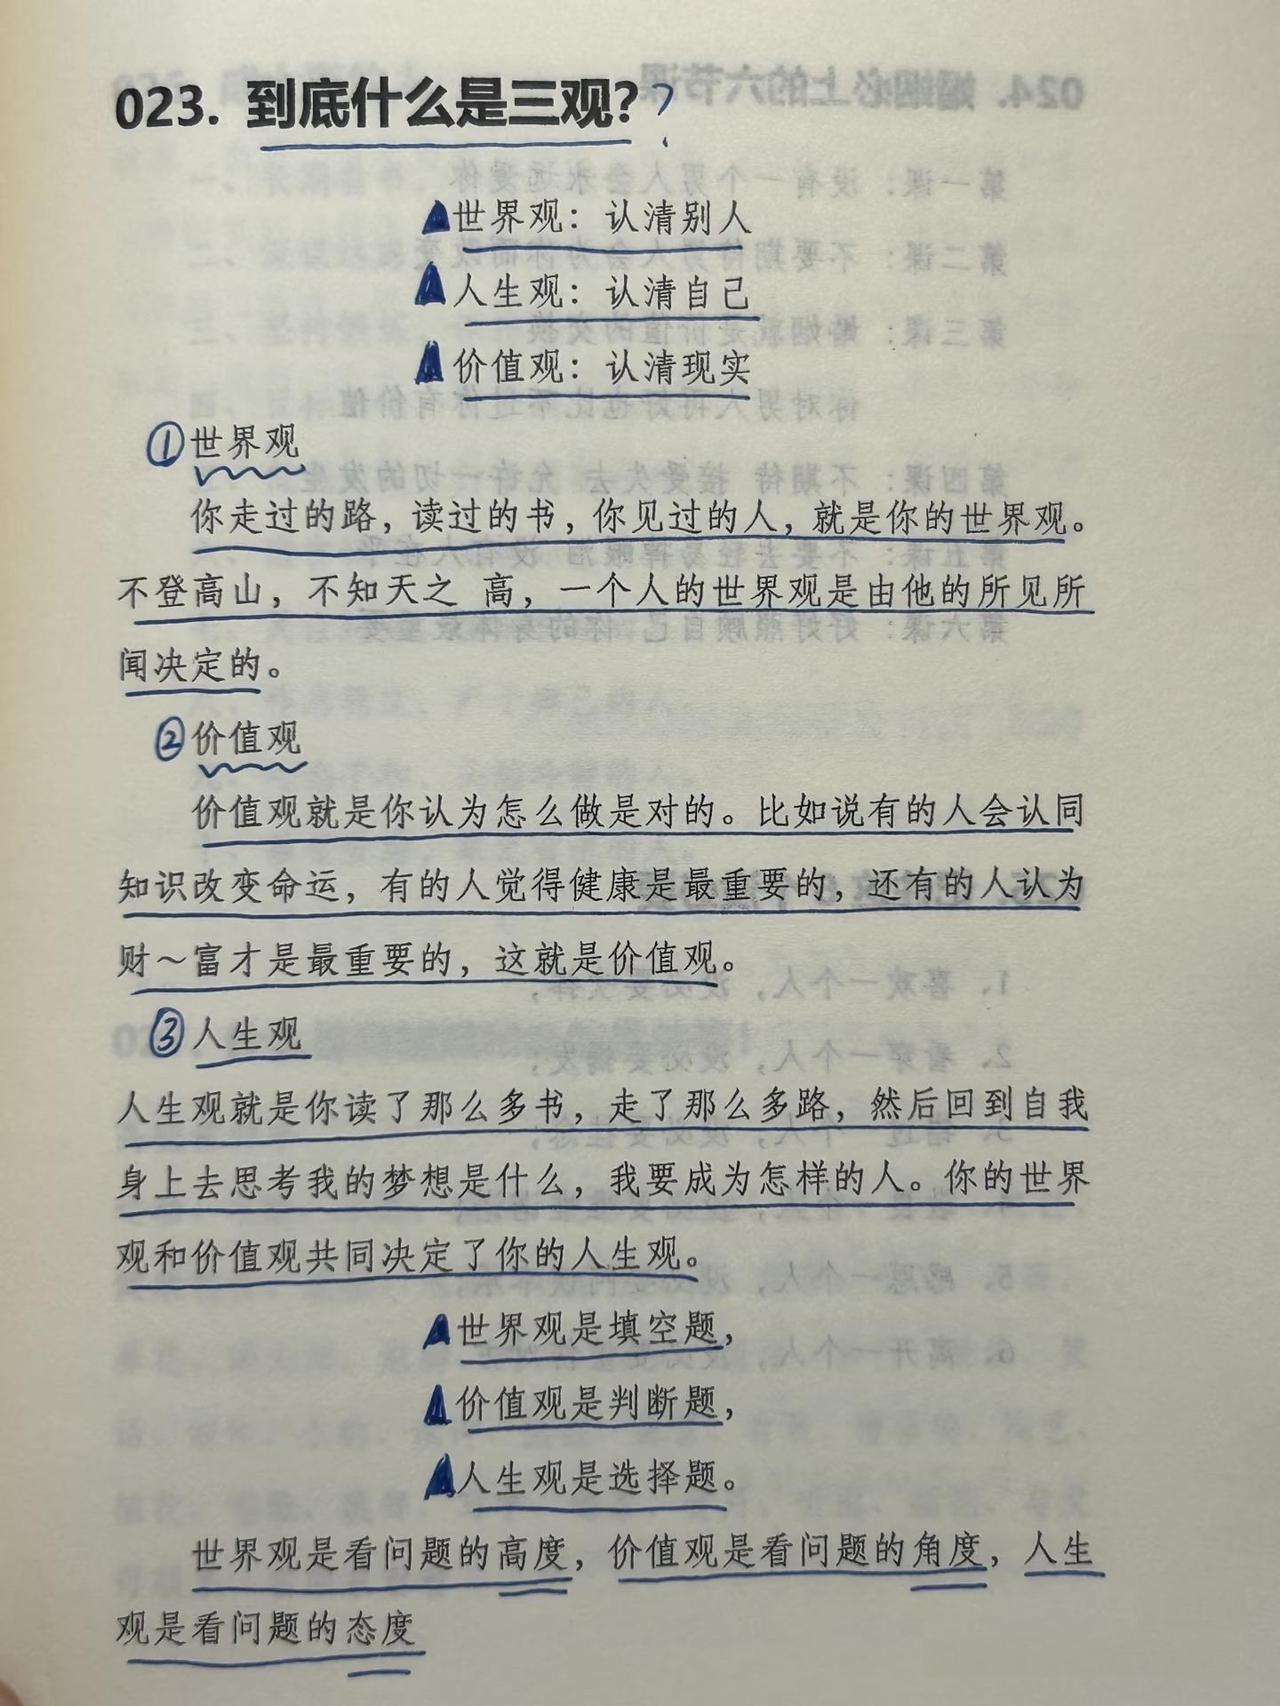 023. 到底什么是三观？?
世界观：认清别人
人生观：认清自己
价值观：认清现实
①世界观
你走过的路，读过的书，你见过的人，就是你的世界观。
不登高山，不知天之 高，一个人的世界观是由他的所见所
闻决定的。
②价值观
价值观就是你认为怎么做是对的。比如说有的人会认同
知识改变命运，有的人觉得健康是最重要的，还有的人认为
财～富才是最重要的，这就是价值观。
③人生观
人生观就是你读了那么多书，走了那么多路，然后回到自我
身上去思考我的梦想是什么，我要成为怎样的人。你的世界
观和价值观共同决定了你的人生观。
世界观是填空题，
价值观是判断题，
人生观是选择题。
世界观是看问题的高度，价值观是看问题的角度，人生
观是看问题的态度